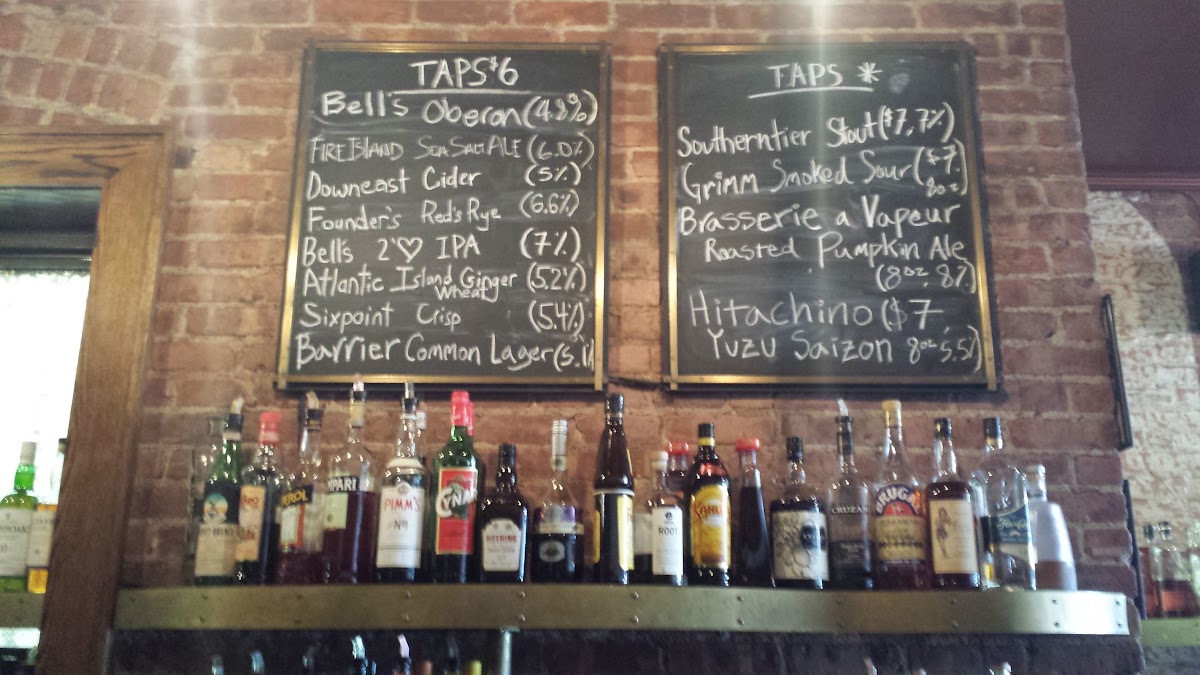 TAPS $6
Bell's Oberon (4.8%)
FIRE ISLAND SEA SALT ALE (6.0%)
Downeast Cider (5%)
Founder's Red's Rye (6.6%)
Bell's 2'♡ IPA (7%)
Atlantic Island Ginger (5.2%)
Wheat
Sixpoint Crisp (5.4%)
Barrier Common Lager (5.1%
TAPS *
Southerntier Stout ($7, 7%)
Grimm Smoked Sour ($7.
8oz)
Brasserie a Vapeur
Roasted Pumpkin Ale
(8oz. 8%)
Hitachino ($7.
Yuzu Saizon 8oz 5.5%)
MPARI
PIMM'S
No1
CYNAR
HEERING
ROOT
KAHLÚA
CRUZAN
BRUGAL